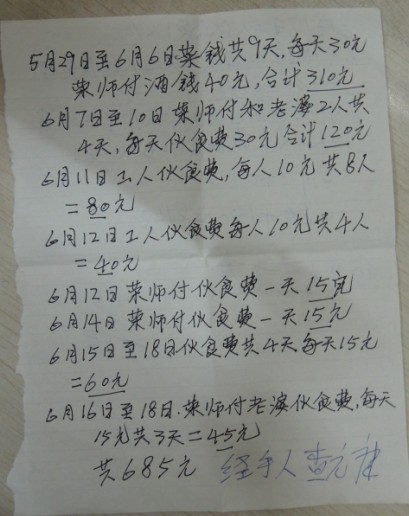 5月29日至6月6日菜钱共9天,每天30元
菜师付酒钱40元,合计310元
6月7日至10日菜师付和老婆2人共
4天,每天伙食费30元合计120元
6月11日工人伙食费,每人10元共8人
=80元
6月12日工人伙食费每人10元共4人
=40元
6月12日菜师付伙食费一天15元
6月14日菜师付伙食费一天15元
6月15日至18日伙食费共4天每天15元
=60元
6月16日至18日.菜师付老婆伙食费,每天
15元共3天=45元
共685元 经手人查元